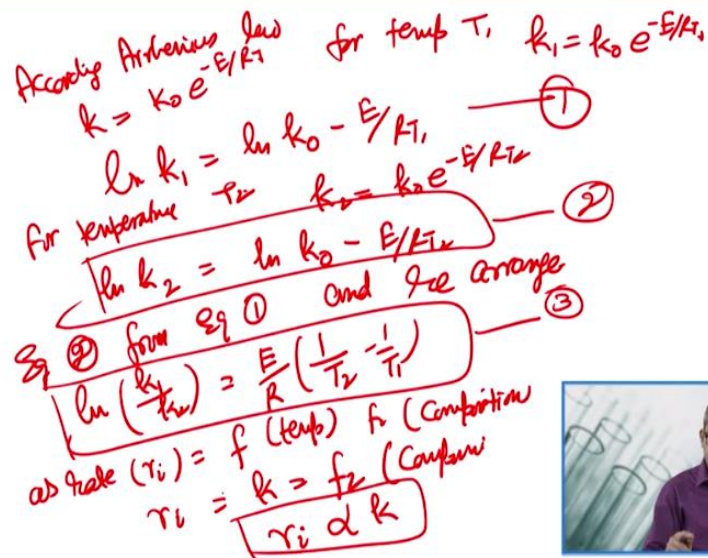 According Arrhenius law for temp T₁ k₁ = k₀ e^{-E/RT₁}
k = k₀ e^{-E/RT}
ln k₁ = ln k₀ - E/RT₁ — ①
For temperature T₂ k₂ = k₀ e^{-E/RT₂}
ln k₂ = ln k₀ - E/RT₂ — ②
Eq ② from Eq ① and re arrange
ln (k₁/k₂) = E/R (1/T₂ - 1/T₁) — ③
as rate (rᵢ) = f (temp) f₂ (Composition
rᵢ = k = f₂ (
rᵢ ∝ k